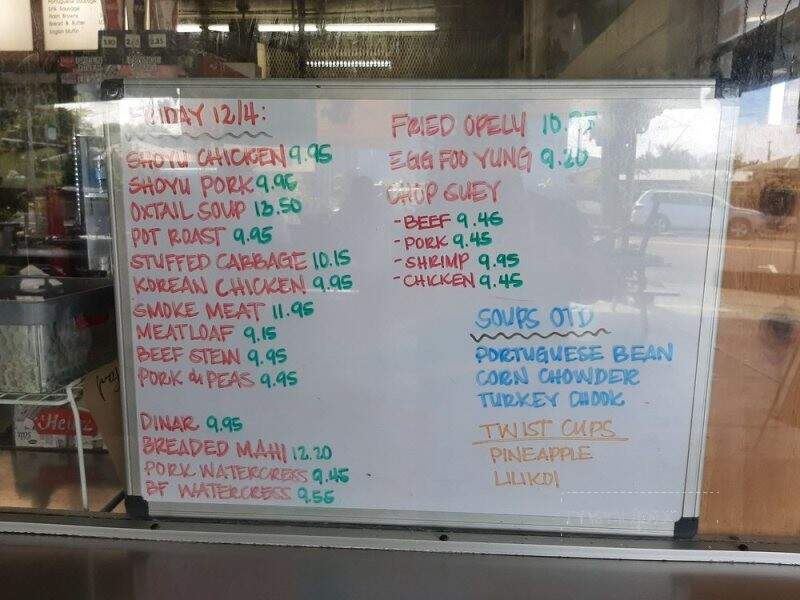 Portuguese Sausage
Link Sausage
Hash Browns
Bread & Butter
English Muffin
FRIDAY 12/4:
SHOYU CHICKEN 9.95
SHOYU PORK 9.95
OXTAIL SOUP 13.50
POT ROAST 9.95
STUFFED CABBAGE 10.15
KOREAN CHICKEN 9.95
SMOKE MEAT 11.95
MEATLOAF 9.15
BEEF STEW 9.95
PORK & PEAS 9.95
DINAR 9.95
BREADED MAHI 12.20
PORK WATERCRESS 9.45
BF WATERCRESS 9.55
FRIED OPELU
EGG FOO YUNG 9.20
CHOP SUEY
- BEEF 9.45
- PORK 9.45
- SHRIMP 9.95
- CHICKEN 9.45
SOUPS OTD
PORTUGUESE BEAN
CORN CHOWDER
TURKEY CHOOK
TWIST CUPS
PINEAPPLE
LILIKOI
Heinz